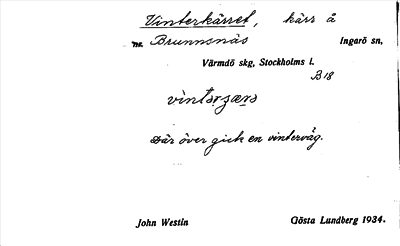 Vinterkärret, kärr å
Brunnsnäs Ingarö sn,
Värmdö skg, Stockholms l.
B18
Där över gick en vinterväg.
John Westin Gösta Lundberg 1934.